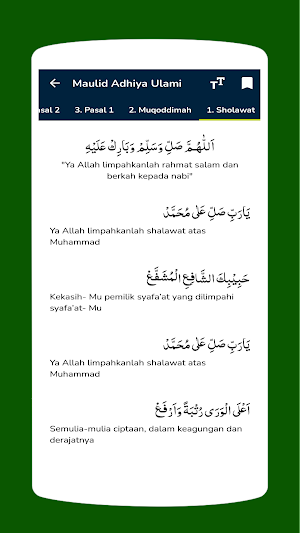 Maulid Adhiya Ulami
asal 2 3. Pasal 1 2. Muqoddimah 1. Sholawat
اَللّٰهُمَّ صَلِّ وَسَلِّمْ وَبَارِكْ عَلَيْهِ
"Ya Allah limpahkanlah rahmat salam dan
berkah kepada nabi"
يَارَبِّ صَلِّ عَلٰى مُحَمَّدْ
Ya Allah limpahkanlah shalawat atas
Muhammad
حَبِيْبِكَ الشَّافِعِ الْمُشَفَّعْ
Kekasih- Mu pemilik syafa'at yang dilimpahi
syafa'at- Mu
يَارَبِّ صَلِّ عَلٰى مُحَمَّدْ
Ya Allah limpahkanlah shalawat atas
Muhammad
اَعْلَى الْوَرَى رُتْبَةً وَاَرْفَعْ
Semulia-mulia ciptaan, dalam keagungan dan
derajatnya